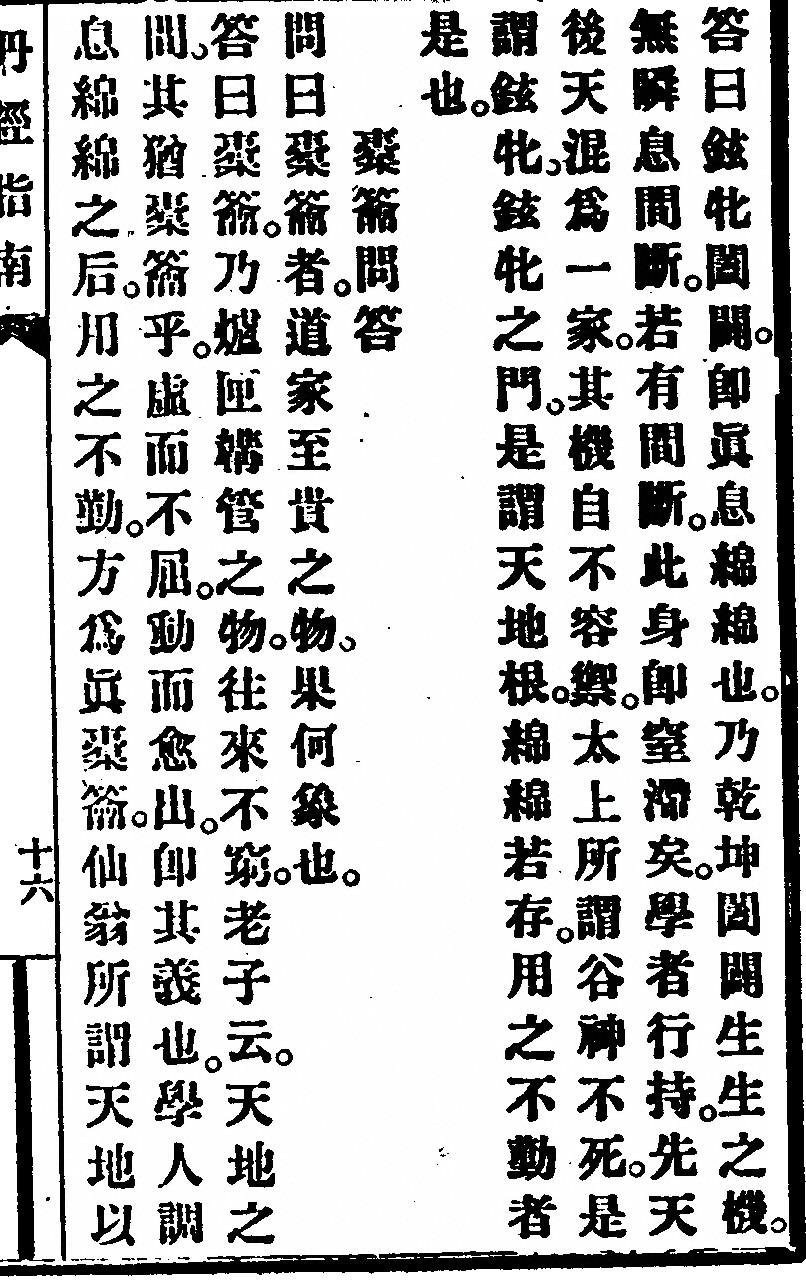 答曰鉉牝闔闢。卽眞息綿綿也。乃乾坤闔闢生生之機。
無瞬息間斷。若有間斷。此身卽窒滯矣。學者行持。先天
後天混爲一家。其機自不容禦。太上所謂谷神不死。是
謂鉉牝、鉉牝之門。是謂天地根。綿綿若存。用之不勤者
是也。
橐籥問答
問曰橐籥者。道家至貴之物、果何象也。
答曰橐籥。乃爐匣鞴管之物。往來不窮。老子云。天地之
間、其猶橐籥乎。虛而不屈。動而愈出。卽其義也。學人調
息綿綿之后。用之不勤。方爲眞橐籥。仙翁所謂天地以
丹經指南
十六